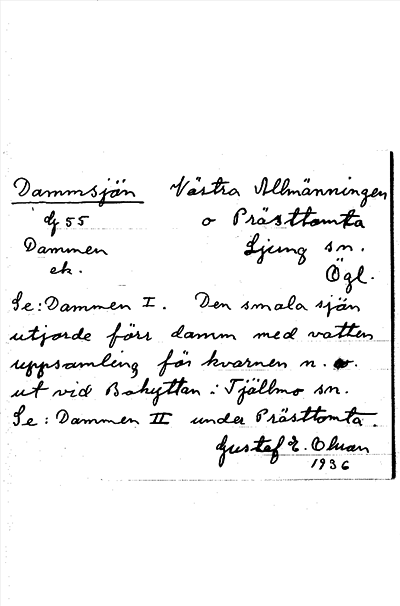 Dammsjön Västra Allmänningen
dj 55 o Prästtomta
Dammen Ljung sn.
ek. Ögl.
Se: Dammen I. Den smala sjön
utjorde förr damm med vatten
uppsamling för kvarnen n. o.
ut vid Bohyttan i Tjällmo sn.
Se: Dammen II under Prästtomta.
Gustaf E. Olsson
1936